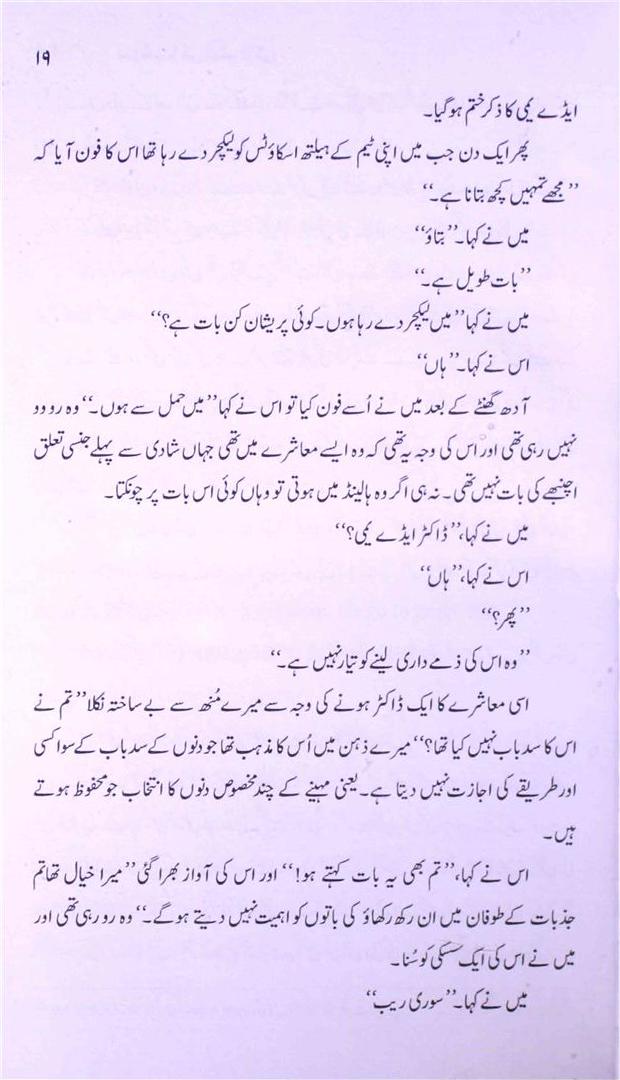 ۱۹
ایڈے یمی کا ذکر ختم ہو گیا۔
پھر ایک دن جب میں اپنی ٹیم کے ہیلتھ اسکاؤٹس کو لیکچر دے رہا تھا اس کا فون آیا کہ
’’مجھے تمہیں کچھ بتانا ہے۔‘‘
میں نے کہا۔ ’’بتاؤ‘‘
’’بات طویل ہے۔‘‘
میں نے کہا ’’میں لیکچر دے رہا ہوں۔ کوئی پریشان کن بات ہے؟‘‘
اس نے کہا۔ ’’ہاں‘‘
آدھ گھنٹے کے بعد میں نے اُسے فون کیا تو اس نے کہا ’’میں حمل سے ہوں۔‘‘ وہ رو وو
نہیں رہی تھی اور اس کی وجہ یہ تھی کہ وہ ایسے معاشرے میں تھی جہاں شادی سے پہلے جنسی تعلق
اچنبھے کی بات نہیں تھی۔ نہ ہی اگر وہ ہالینڈ میں ہوتی تو وہاں کوئی اس بات پر چونکتا۔
میں نے کہا، ’’ڈاکٹر ایڈے یمی؟‘‘
اس نے کہا، ’’ہاں‘‘
’’پھر؟‘‘
’’وہ اس کی ذمے داری لینے کو تیار نہیں ہے۔‘‘
اسی معاشرے کا ایک ڈاکٹر ہونے کی وجہ سے میرے مُنھ سے بے ساختہ نکلا ’’تم نے
اس کا سدباب نہیں کیا تھا؟‘‘ میرے ذہن میں اُس کا مذہب تھا جو دنوں کے سدباب کے سوا کسی
اور طریقے کی اجازت نہیں دیتا ہے۔ یعنی مہینے کے چند مخصوص دنوں کا انتخاب جو محفوظ ہوتے
ہیں۔
اس نے کہا، ’’تم بھی یہ بات کہتے ہو!‘‘ اور اس کی آواز بھرا گئی ’’میرا خیال تھا تم
جذبات کے طوفان میں ان رکھ رکھاؤ کی باتوں کو اہمیت نہیں دیتے ہوگے۔‘‘ وہ رو رہی تھی اور
میں نے اس کی ایک سسکی کو سُنا۔
میں نے کہا۔ ’’سوری ریب‘‘